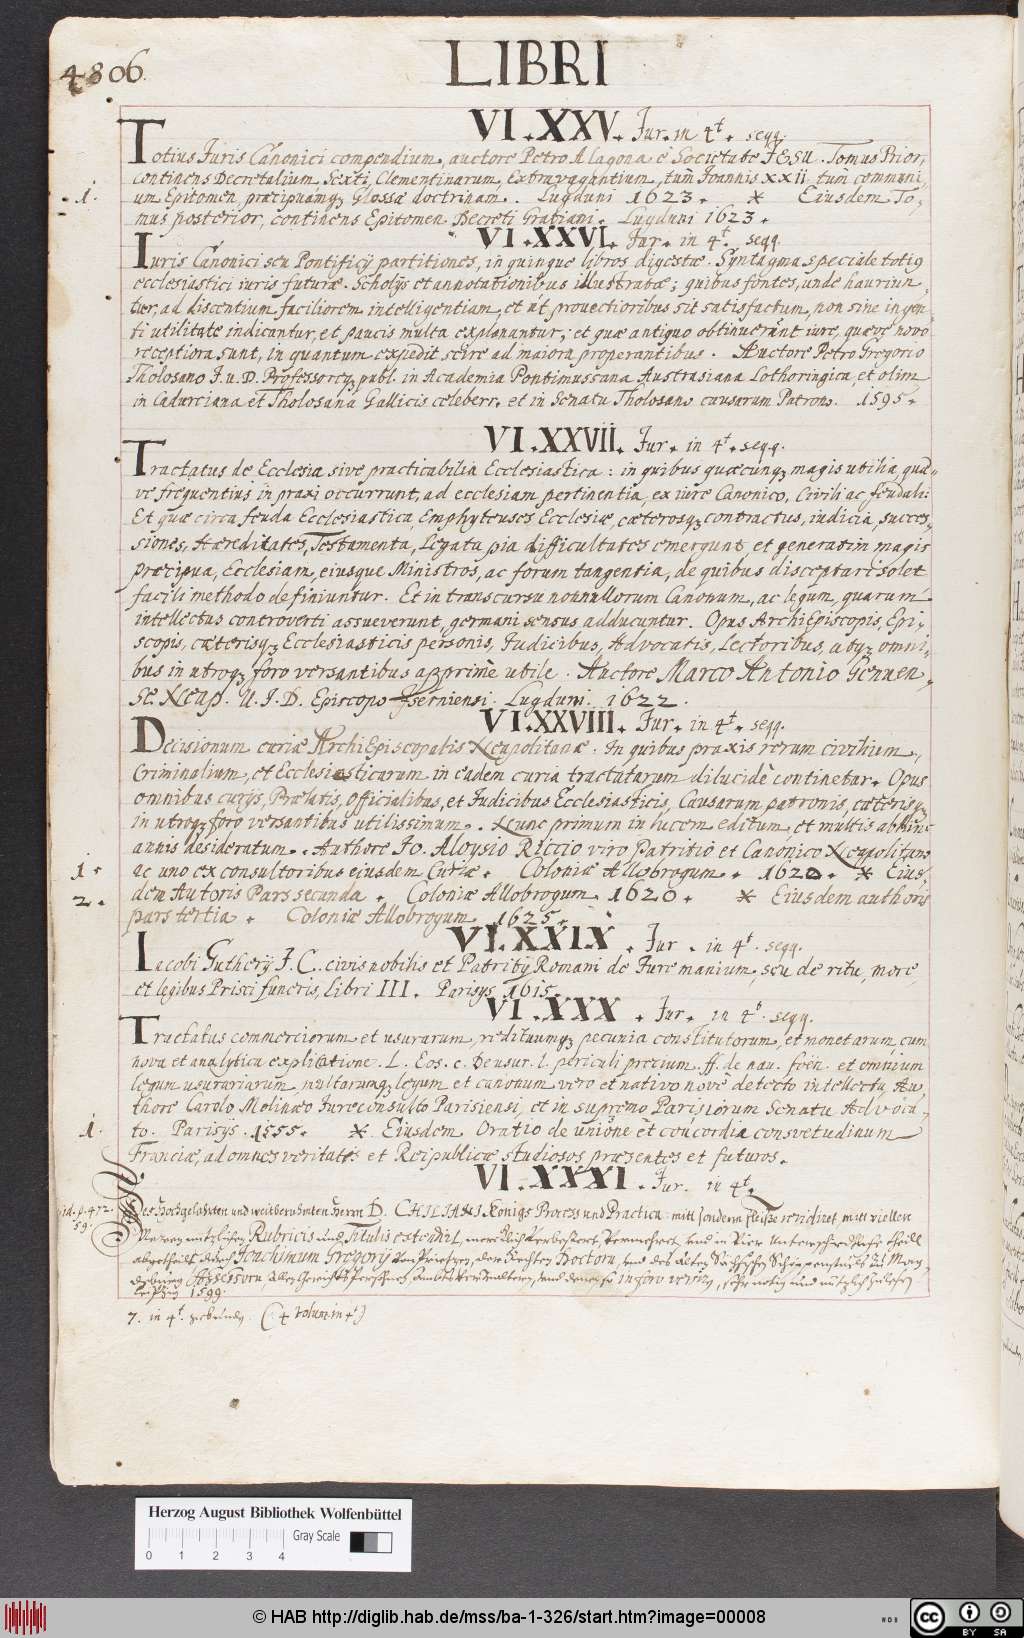 4806.
LIBRI
VI. XXV. Jur. in 4t. seqq.
Totius Juris Canonici compendium, auctore Petro Alagona e Societate JESU. Tomus Prior,
continens Decretalium, Sexti, Clementinarum, Extravagantium, tum̃ Joannis XXII tum̃ communi,
1. um Epitomen, præcipuamqȝ Glossæ doctrinam. Lugduni 1623. * Eiusdem To-
mus posterior, continens Epitomen Decreti Gratiani. Lugduni 1623.
VI. XXVI. Jur. in 4t. seqq.
Iuris Canonici seu Pontificij partitiones, in quinque libros digestæ. Syntagma speciale totiꝯ
ecclesiastici iuris futuræ. Scholijs et annotationibus illustratæ; quibus fontes, unde hauriun-
tur, ad discentium faciliorem intelligentiam, et út provectioribus sit satisfactum, non sine ingen-
ti utilitate indicantur, et paucis multa explanantur, et quæ antiquo obtinuerant iure, quæve novo
receptiora sunt, in quantum expedit scire ad maiora properantibus. Auctore Petro Gregorio
Tholosano J.U.D. Professoreqȝ publ. in Academia Pontimussana Austrasiana Lothoringica, et olim
in Cadurciana et Tholosana Gallicis celeberr. et in Senatu Tholosano causarum Patrono. 1595.
VI. XXVII. Jur. in 4t. seqq.
Tractatus de Ecclesia sive practicabilia Ecclesiastica: in quibus quæcunqȝ magis utilia, quæ-
ve frequentius in praxi occurrunt, ad ecclesiam pertinentia, ex iure Canonico, Civili ac feudali:
Et quæ circa feuda Ecclesiastica, Emphyteuses Ecclesiæ, cæterosqȝ contractus, iudicia, succes-
siones, Hæreditates, Testamenta, Legata pia difficultates emergunt, et generatim magis
præcipua, Ecclesiam, eiusque Ministros, ac forum tangentia, de quibus disceptari solet
facili methodo definiuntur. Et in transcursu nonnullorum Canonum, ac legum, quarum
intellectus controverti assueverunt, germani sensus adducuntur. Opus ArchiEpiscopis, Epi-
scopis, cæterisqȝ Ecclesiasticis personis, Judicibus, Advocatis, Lectoribus, atqȝ omni-
bus in utroqȝ foro versantibus apprime utile. Auctore Marco Antonio Genuen-
se Neap. U.J.D. Episcopo Iserniensi. Lugduni. 1622.
VI. XXVIII. Jur. in 4t. seqq.
Decisionum curiæ ArchiEpiscopalis Neapolitanæ. In quibus praxis rerum civilium,
Criminalium, et Ecclesiasticarum in eadem curia tractatarum dilucidè continetur. Opus
omnibus curijs, Prælatis, Officialibus, et Judicibus Ecclesiasticis, Causarum patronis, cæterisqȝ
in utroqȝ foro versantibus utilissimum. Nunc primum in lucem editum, et multis abhinc
annis desideratum. Authore Jo. Aloysio Riccio viro Patritio et Canonico Neapolitano
1. ac uno ex consultoribus eiusdem Curiæ. Coloniæ Allobrogum. 1620. * Eius-
2. dem Autoris Pars secunda. Coloniæ Allobrogum 1620. * Eiusdem authoris
pars tertia. Coloniæ Allobrogum 1625.
VI. XXIX. Jur. in 4t. seqq.
Iacobi Gutherij J.C. civis nobilis et Patritij Romani de Jure manium, seu de ritu, more,
et legibus Prisci funeris, Libri III. Parisys 1615.
VI. XXX. Jur. in 4t. seqq.
Tractatus commerciorum et usurarum, redituumqȝ pecunia constitutorum, et monetarum, cum
nova et analytica explicatione. L. Eos. c. de usur. l. periculi precium ff. de nau. foen. et omnium
legum usurariarum, multarumqȝ legum et canonum vero et nativo novè detecto intellectu, Au-
thore Carolo Molinæo Jureconsulto Parisiensi, et in supremo Parisiorum Senatu Advoca-
1. to. Parisys. 1555. * Eiusdem Oratio de unione et concordia consvetudinum
Franciæ, ad omnes veritatis et Reipublicæ studiosos præsentes et futuros.
VI. XXXI. Jur. in 4t.
vid. p. 472. Des Hochgelahrten und weitberühmten Herrn D. CHILIANI Königs Process und Practica: mitt sondern fleisse revidiret, mitt viellen
59. Rubricis und Titulis
durch Joachimum Gregorij
Assessorn
Leipzig 1599.
7. in 4t. (: 4 volum. in 4t)
Herzog August Bibliothek Wolfenbüttel
Gray Scale
0 1 2 3 4
© HAB http://diglib.hab.de/mss/ba-1-326/start.htm?image=00008
WDB
CC BY SA